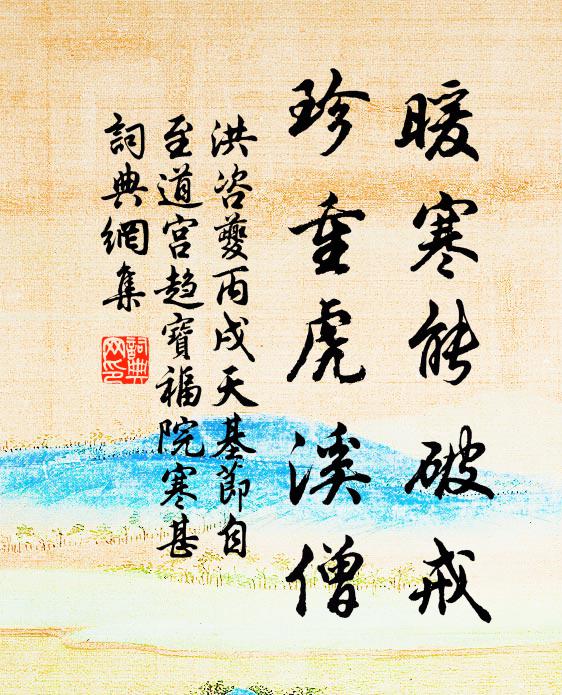 暖寒能破戒
珍重虎溪僧
洪咨夔丙戌天基節自
至道宮趨寶福院寒甚
詞典網集
詞典
网印